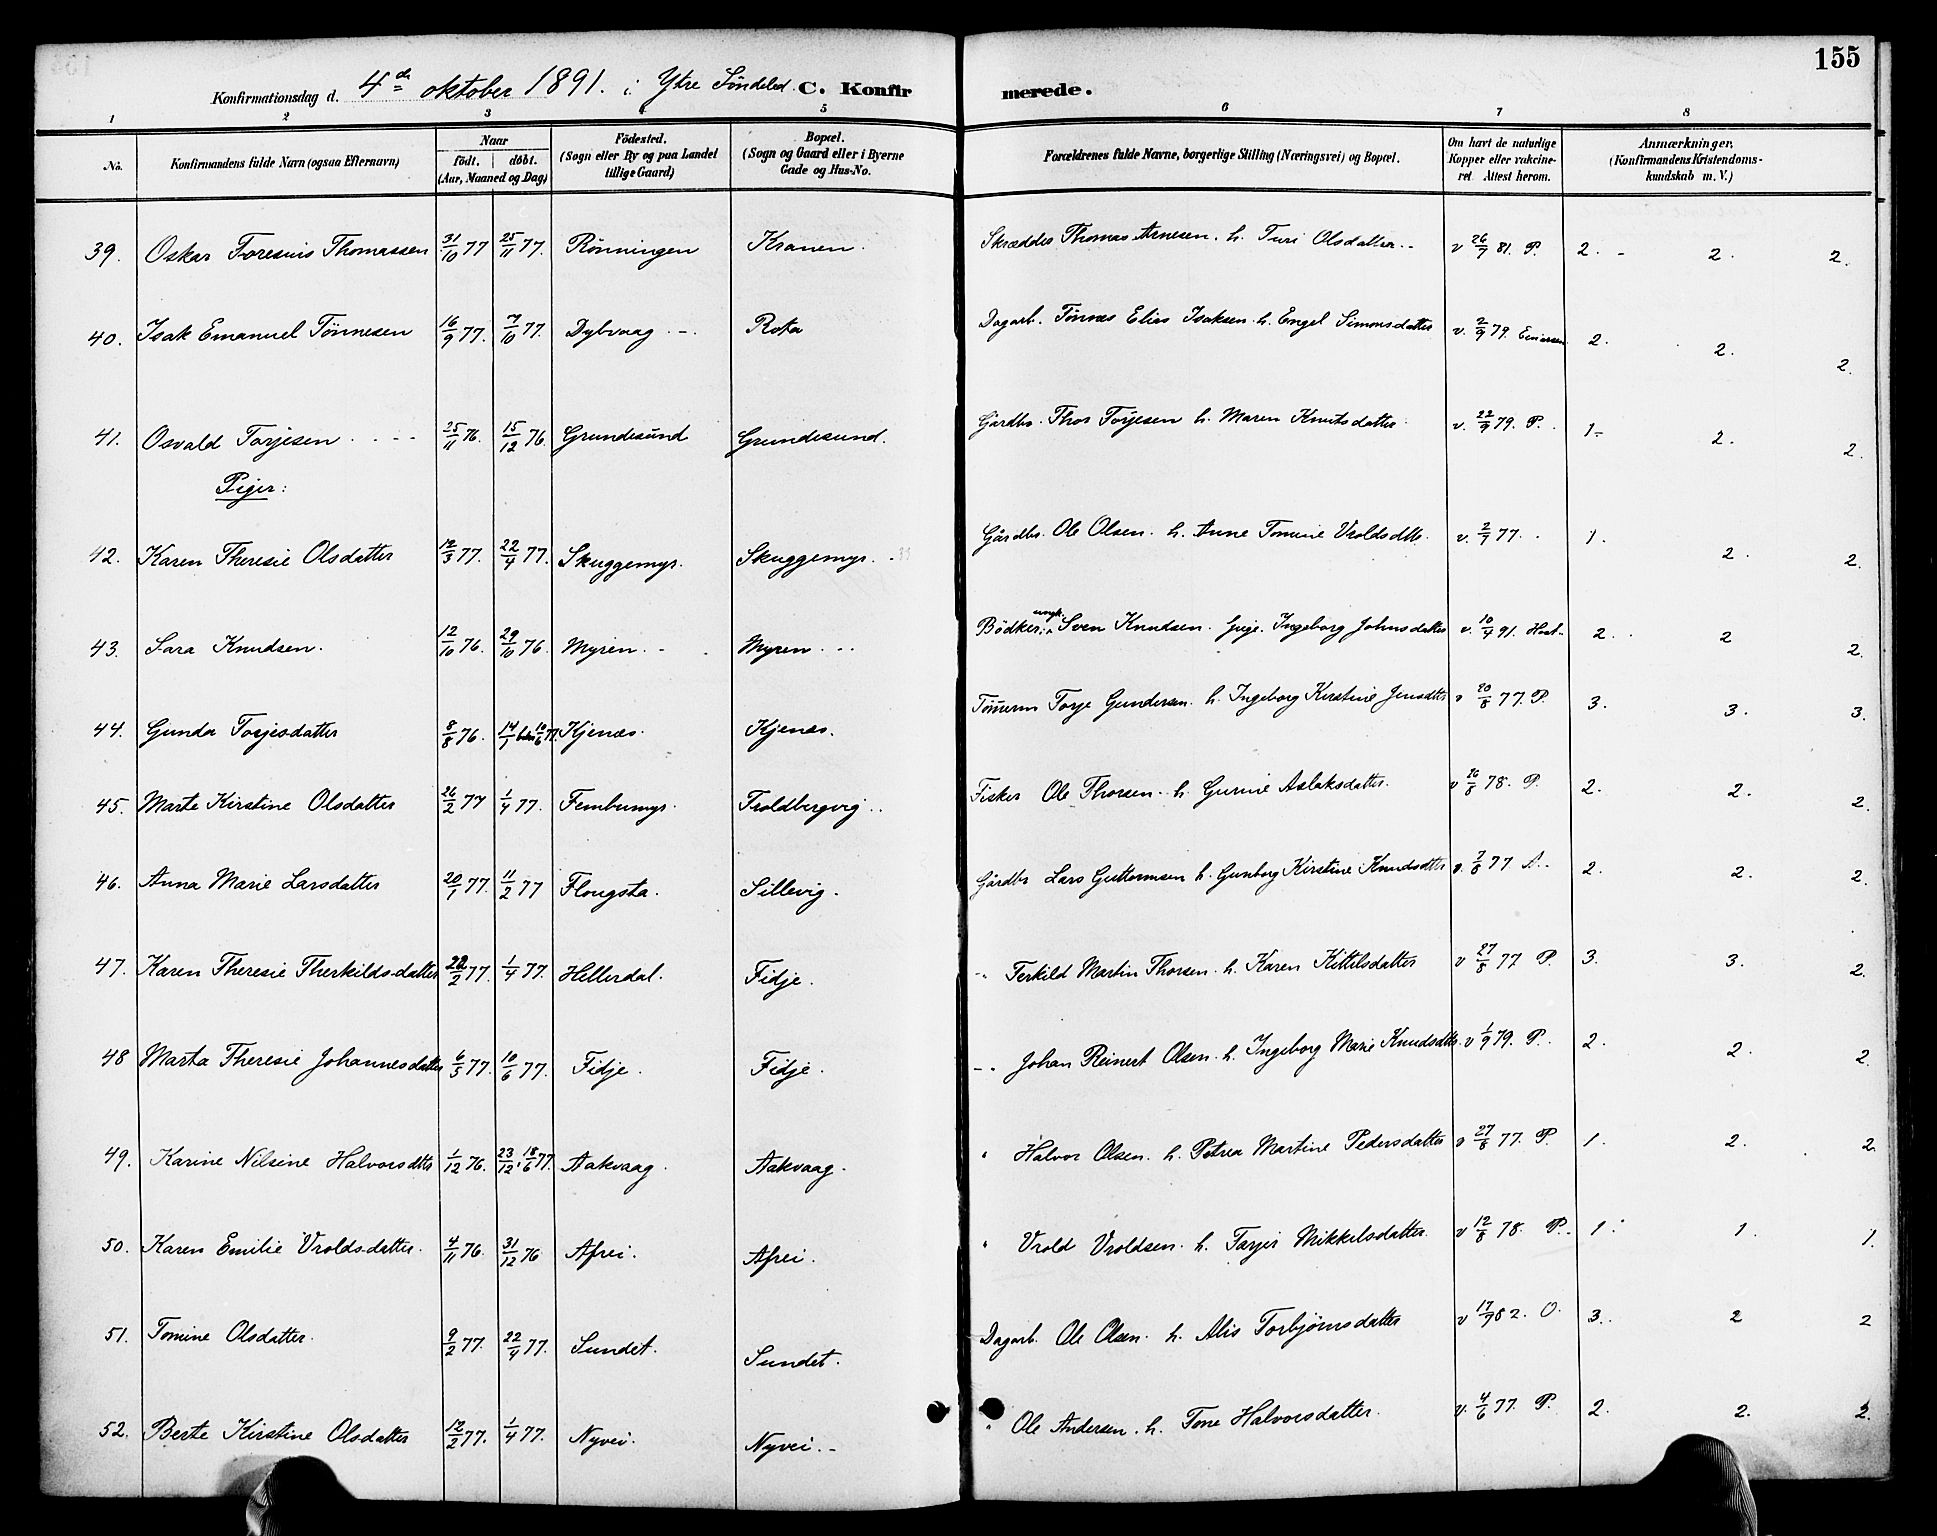 155
Konfirmationsdag d. 4de oktober 1891. i Ytre Søndeled. C. Konfirmerede.
1 2 3 4 5 6 7 8
No. Konfirmandens fulde Navn (ogsaa Efternavn) Naar født. døbt. (Aar, Maaned og Dag) Fødested. (Sogn eller By og paa Landet tillige Gaard) Bopæl. (Sogn og Gaard eller i Byerne Gade og Hus-No. Forældrenes fulde Navne, borgerlige Stilling (Næringsvei) og Bopæl. Om havt de naturlige Kopper eller vakcineret. Attest herom. Anmærkninger. (Konfirmandens Kristendomskundskab m. V.)
39. Oskar Toresius Thomassen 31/10 77 25/11 77. Rønningen Kranen. Skrædder Thomas Arnesen. h. Turi Olsdatter.- v 26/7 81. P. 2. - 2. 2.
40. Isak Emanuel Tønnesen 16/9 77. 7/10 77. Dybvaag .-. Rota Dagarb. Tønnes Elias Isaksen. h. Engel Simonsdatter v. 2/9 79. 2. 2. 2.
41. Osvald Torjesen 25/11 76. 15/12 76. Grundesund Grundesund. Gårdbr. Thor Torjesen h. Maren Knutsdatter. v. 22/9 79. P. 1- 2. 2.
Piger:
42. Karen Theresie Olsdatter 12/3 77. 22/4 77. Skuggemyr. Skuggemyr. Gårdbr. Ole Olsen. h. Anne Tomine Vroldsdtr. v. 2/7 77. 1. 2. 2.
43. Sara Knudsen. 12/10 76. 29/10 76. Myren. Myren Bødker, ungk. Sven Knudsen. Ingeborg Johnsdatter v. 10/4 91. 2. 2 2.
44. Gunda Torjesdatter 8/8 76. 14/1 10/6 77. Kjenæs. Kjenæs. Tømerm Torje Gundersen. h. Ingeborg Kirstine Jensdtter v 20/8 77. P. 3. 3. 3.
45. Marte Kirstine Olsdatter 26/2 77 1/4 77. Fembumyr. Troldbergvig.. Fisker Ole Thorsen. h. Gurine Aslaksdatter. v 26/8 78. P. 2. 2. 2.
46. Anna Marie Larsdatter 20/1 77. 11/2 77 Flougsta. Sillevig. Gårdbr Lars Guttormsen h. Gunborg Kirstine Knudsdtter v. 7/8 77 A. 2. 2. 2.
47. Karen Theresie Therkildsdatter 22/2 77. 1/4 77. Hellerdal. Fidje. -. Terkild Martin Thorsen. h. Karen Kittilsdatter v 27/8 77 P. 3. 3. 2.
48 Marta Theresie Johannesdatter 6/5 77. 10/6 77. Fidje. Fidje. -. Johan Reinert Olsen. h. Ingeborg Marie Knudsdtr. v 1/9 79. P. 2. 2. 2.
49. Karine Nilsine Halvorsdtter 1/12 76. 23/12, 18/6 77. Aakvaag. Aakvaag. " Halvor Olsen. h. Petrea Martine Pedersdatter v 27/8 77. P. 1. 2. 2.
50. Karen Emilie Vroldsdatter. 4/11 76. 31/12 76 Afrei. Afrei. " Vrold Vroldsen. h. Tarjer Mikkelsdatter. v 12/8 78. P. 1. 1. 1.
51. Tomine Olsdatter. 9/2 77. 22/4 77. Sundet. Sundet. Dagarb. Ole Olsen. h. Alis Torbjørnsdatter v 17/9 82. O. 3. 2 2
52. Berte Kirstine Olsdatter 12/2 77. 1/4 77. Nyvei. Nyvei.- " Ole Andersen. h. Tone Halvorsdatter. v. 4/6 77. P. 2. 2. 2.